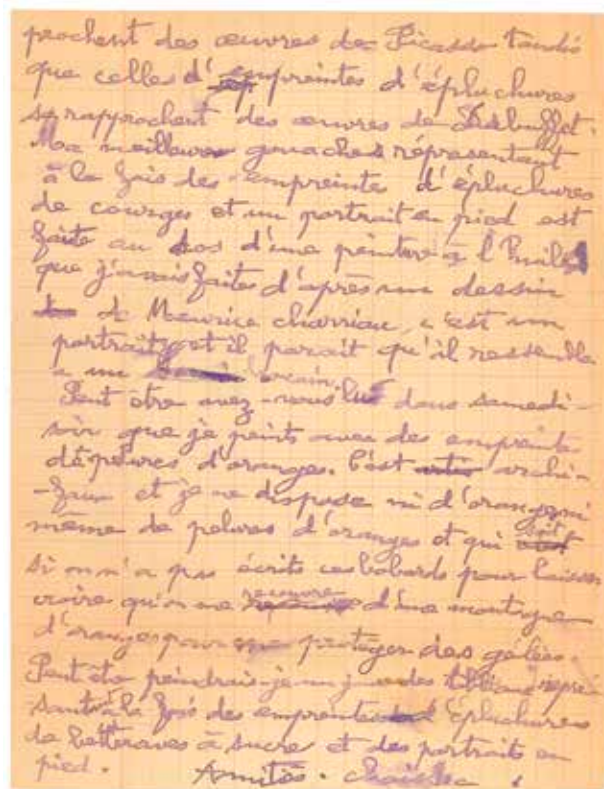 prochent des œuvres de Picasso tandis
que celles d'empreintes d'épluchures
se rapprochent des œuvres de Dubuffet.
Ma meilleure gouaches représentant
à la fois des empreinte d'épluchures
de courges et un portrait en pied est
faite au dos d'une peinture à l'huile
que j'avais faites d'après un dessin
de Maurice charrieau, c'est un
portrait et il parait qu'il ressemble
a un
Peut être avez-vous lu dans samedi-
soir que je peints avec des empreintes
dépelures d'oranges. C'est archi-
-faux et je ne dispose ni d'oranges ni
même de pelures d'oranges et qui sait
si on n'a pas écrits ces bobards pour laisser
croire qu'on me recouvre d'une montagne
d'oranges pour me protéger des gelées.
Peut etre peindrais-je un jour des tableaux repré
sants à la fois des empreintes d'épluchures
de betteraves à sucre et des portraits en
pied. Amitiés. chaissac